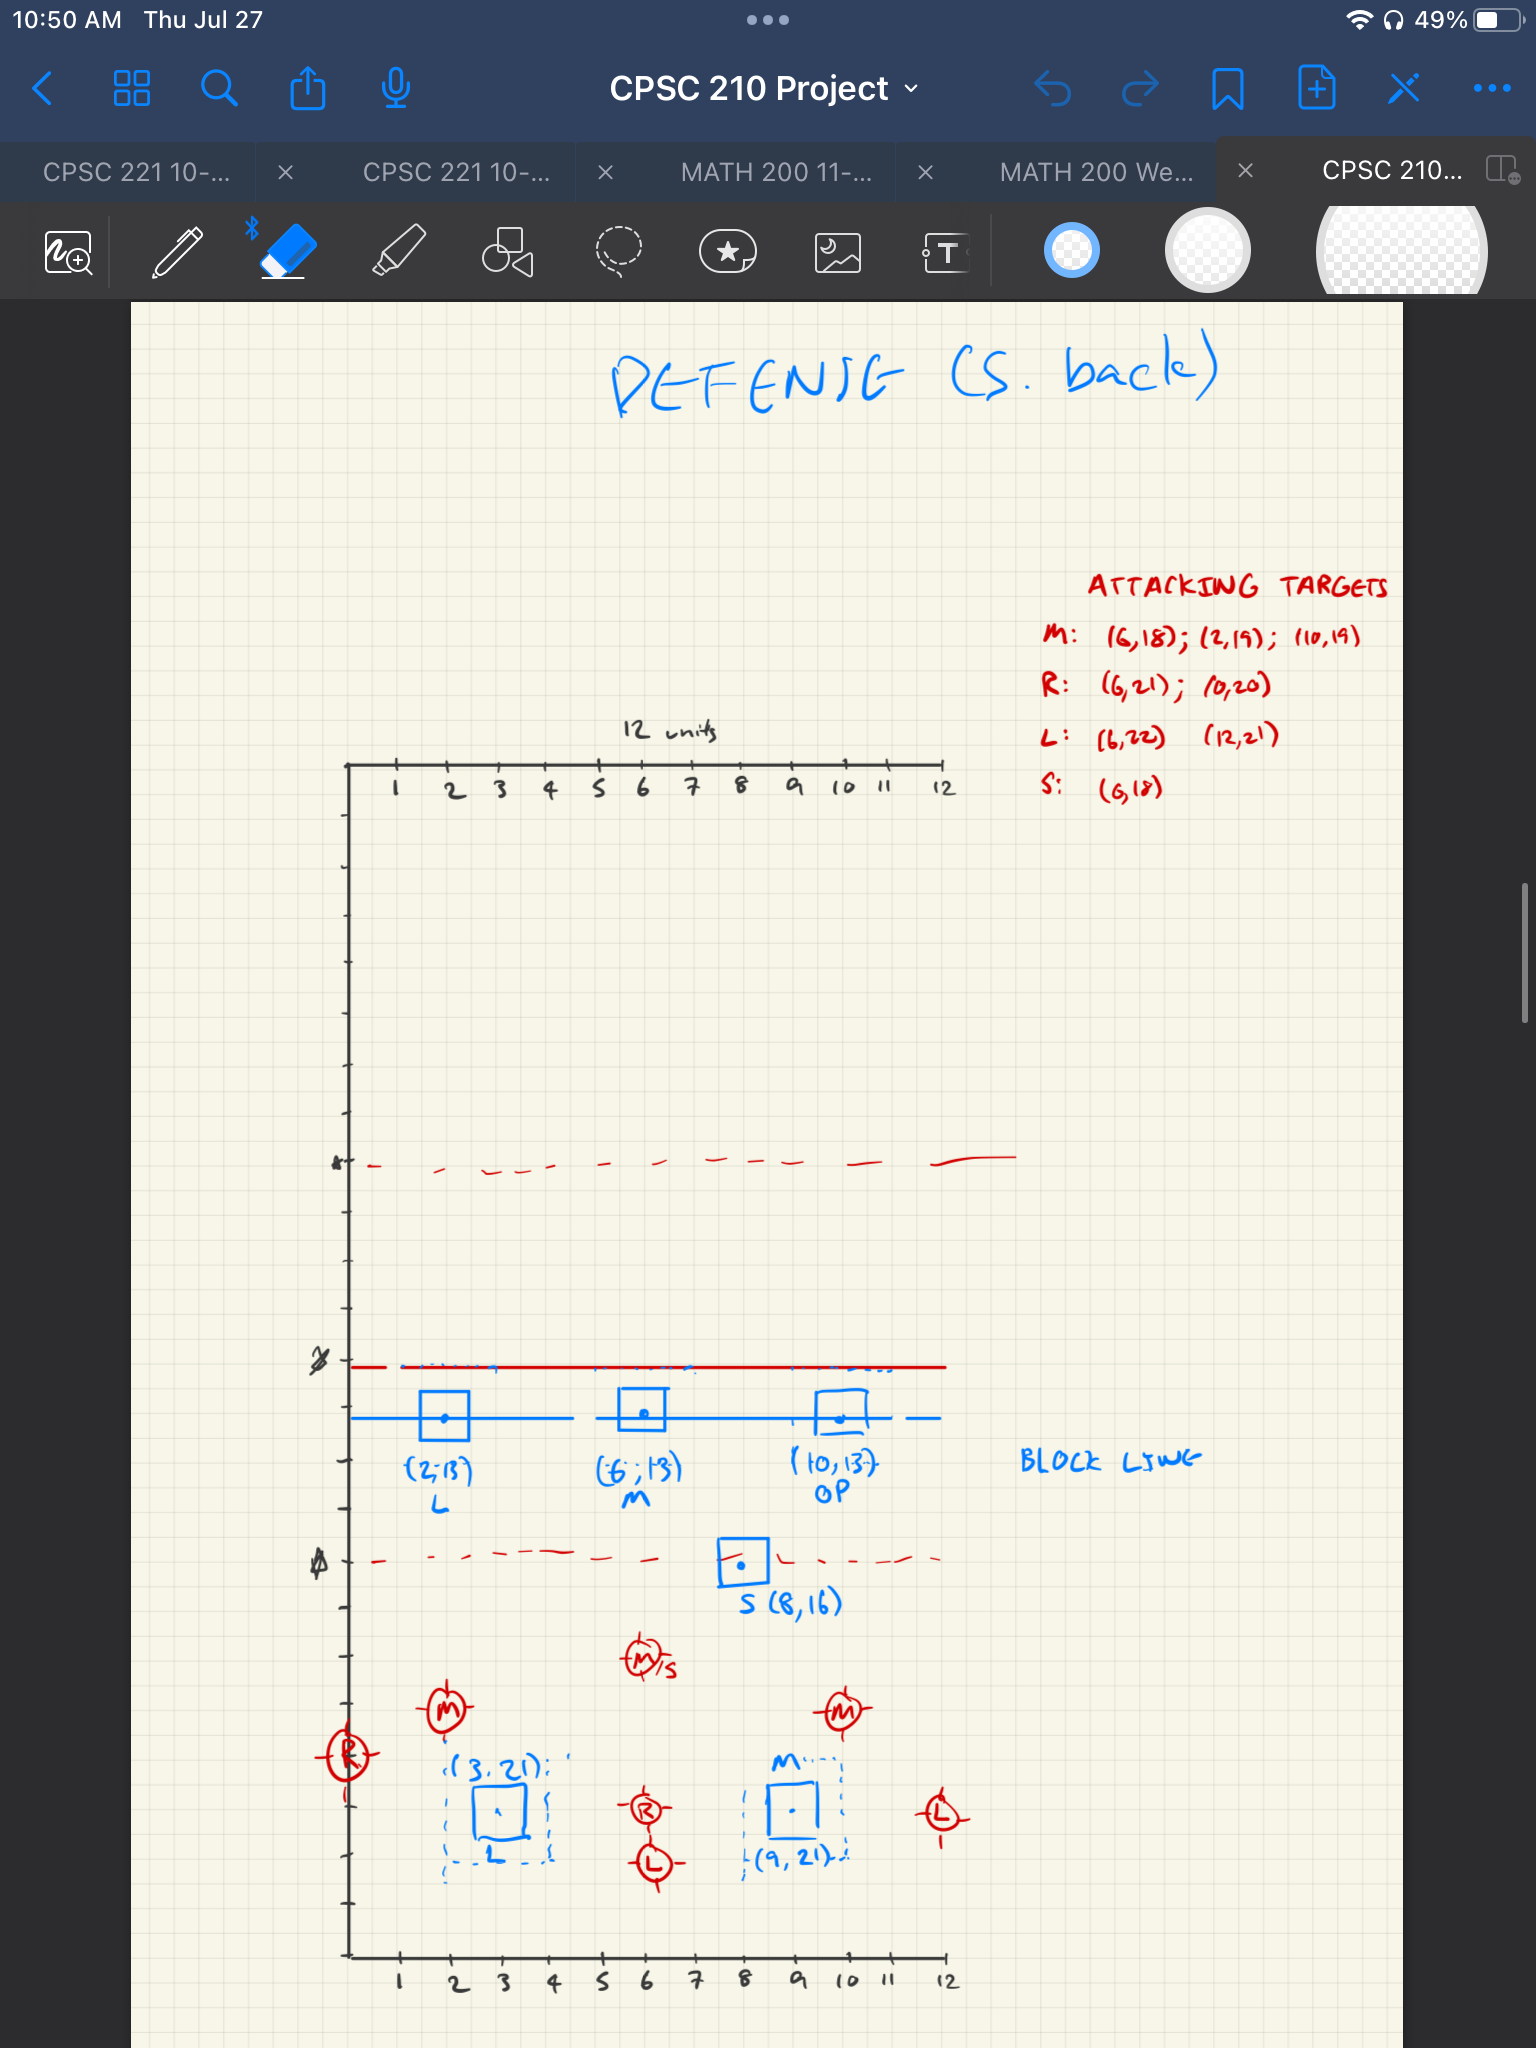 10:50 AM Thu Jul 27
49%
CPSC 210 Project
CPSC 221 10-...
CPSC 221 10-...
MATH 200 11-...
MATH 200 We...
CPSC 210...
T
DEFENSE (S. back)
ATTACKING TARGETS
M: (6,18); (2,19); (10,19)
R: (6,21); (0,20)
L: (6,22) (12,21)
S: (6,18)
12 units
1 2 3 4 5 6 7 8 9 10 11 12
(2,13) (6,13) (10,13)
L M OP
BLOCK LINE
S (8,16)
M/S
M M
R
(3,21) M
R L
L L (9,21)
1 2 3 4 5 6 7 8 9 10 11 12